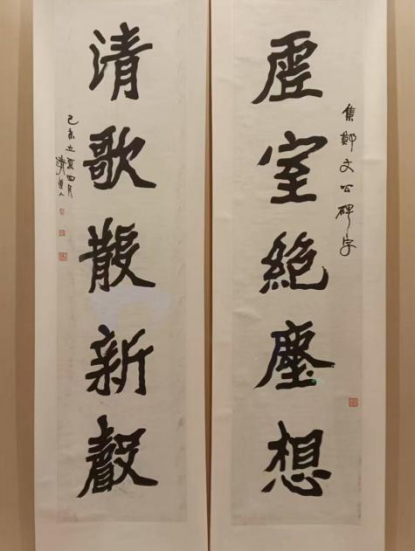 集鄭文公碑字
虛室絕塵想
清歌散新聲
己未夏四月
清道人